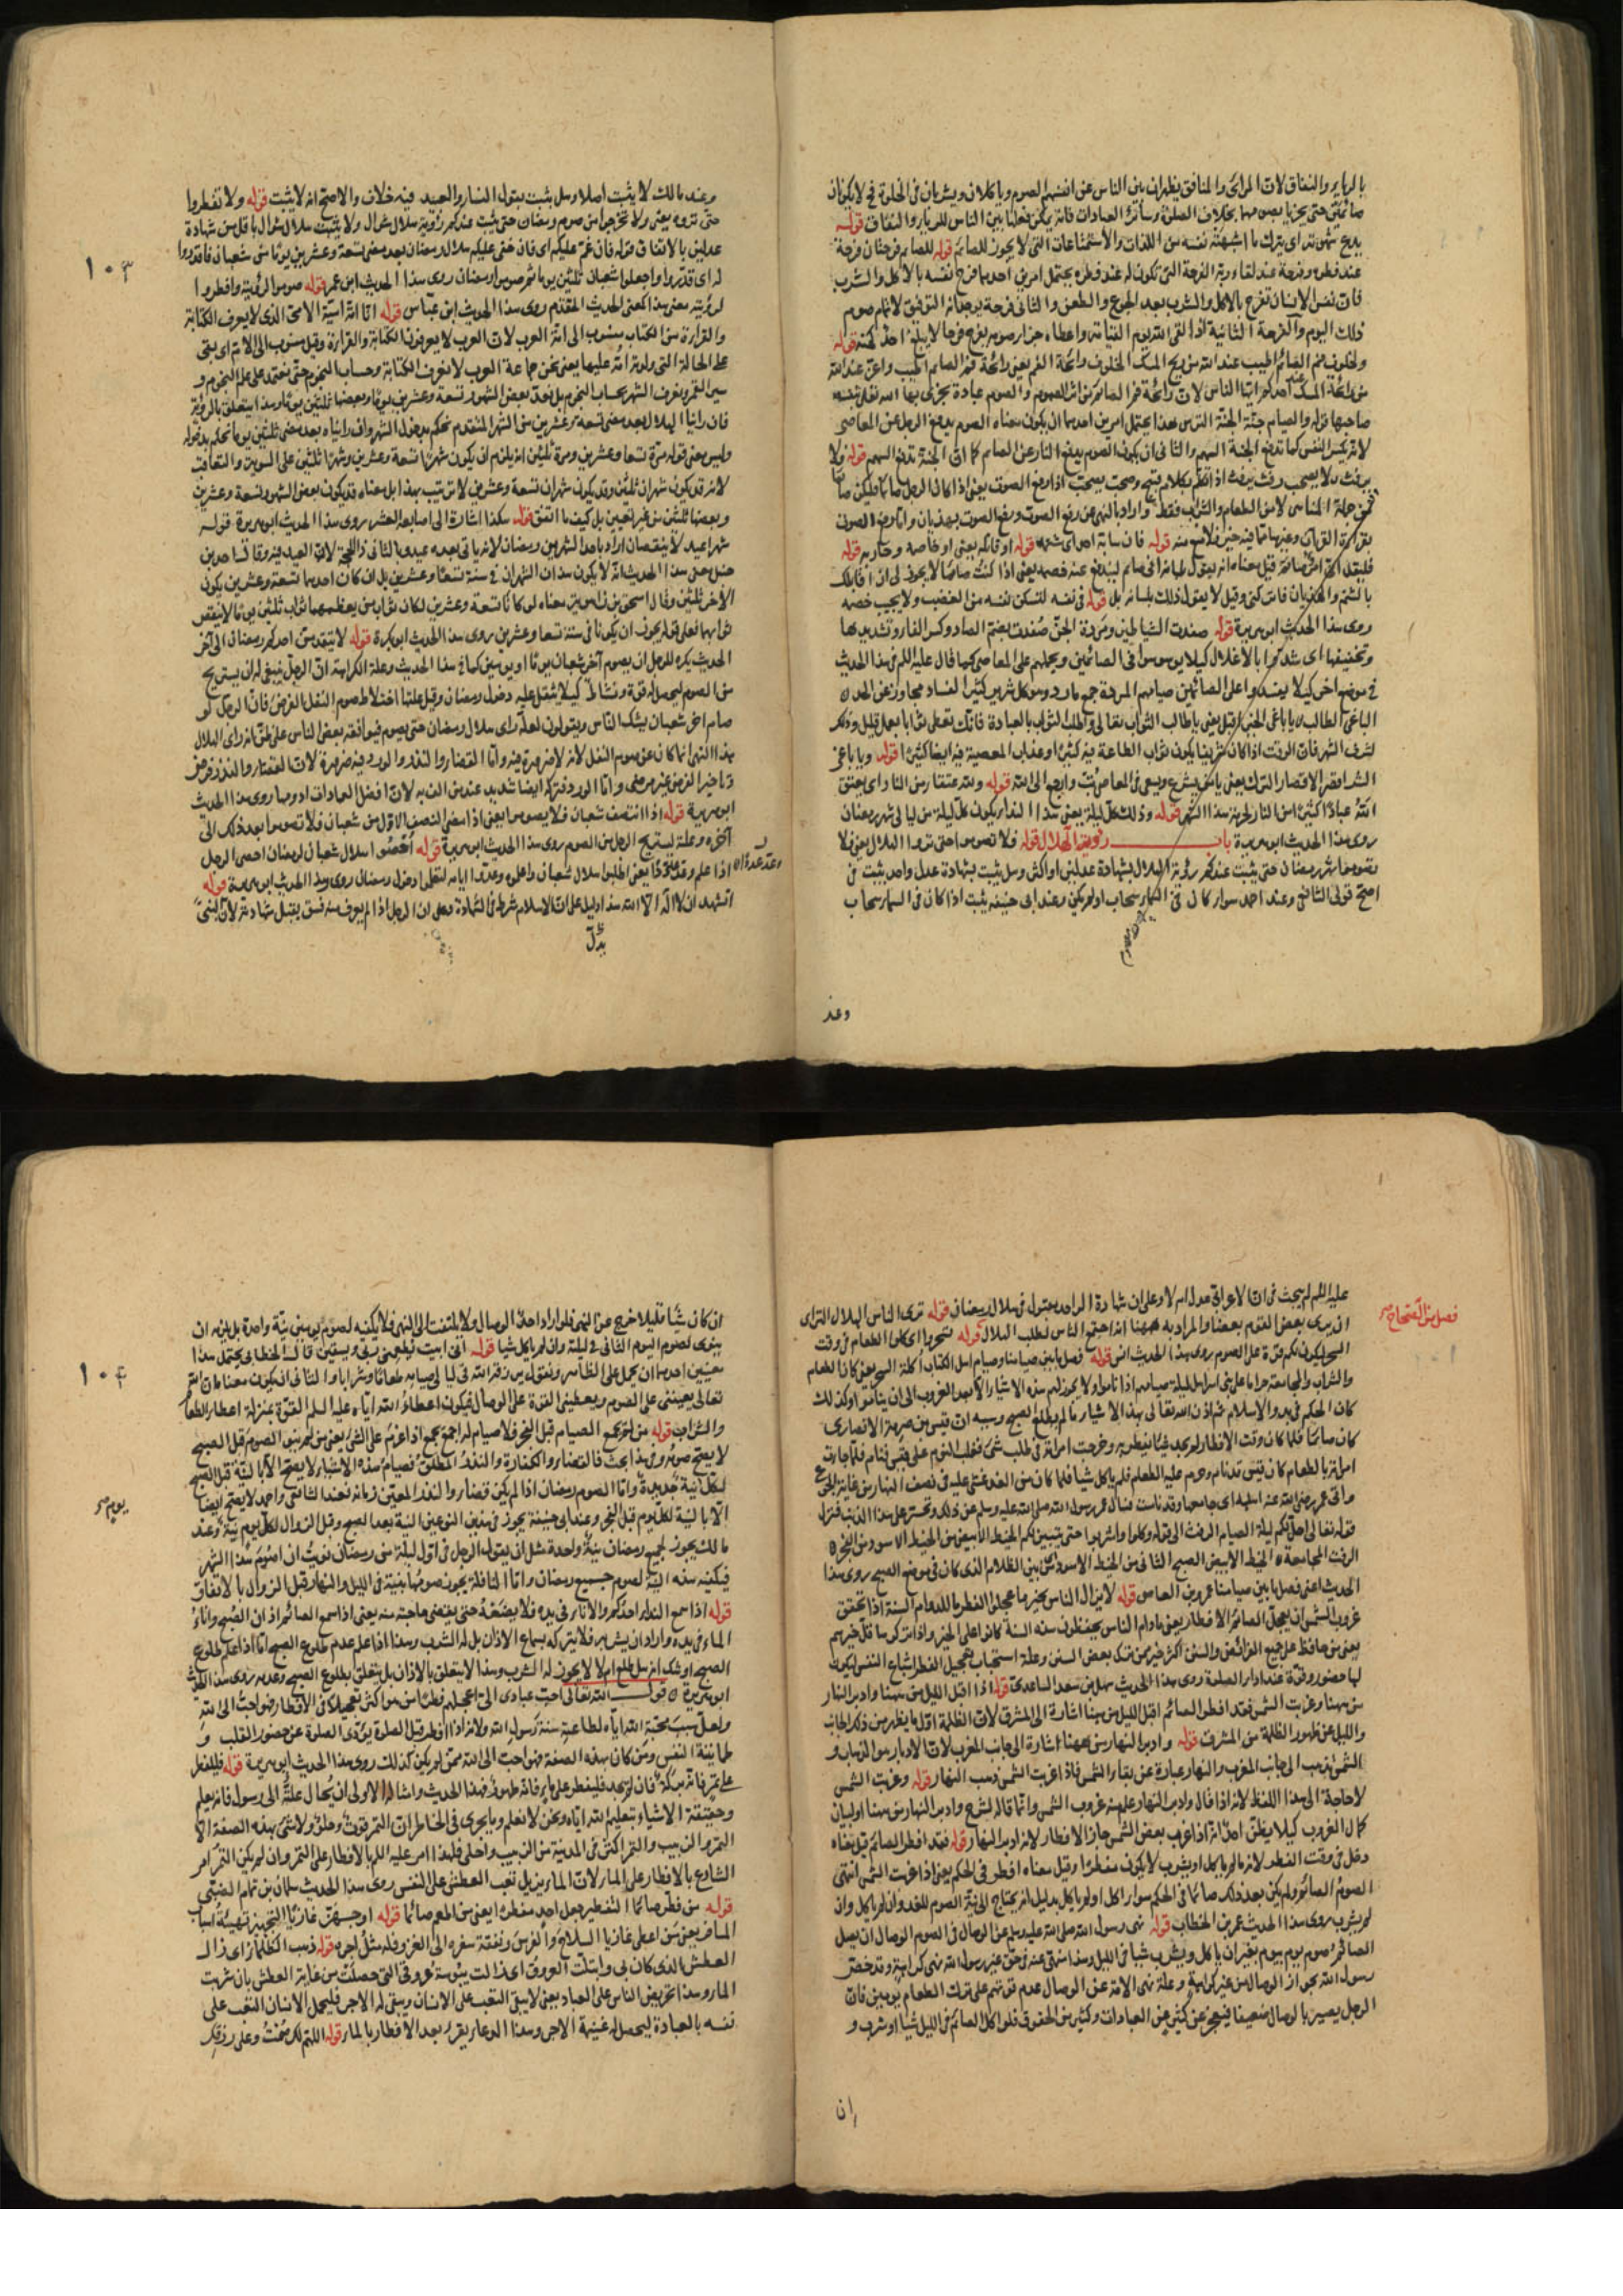 بالرياء والنفاق لان المرائي والمنافق يظهران بين الناس عن انفسهما الصوم وياكلان ويشربان في الخلوة فح لا يكونان
صائمين حتى يجزيا بصومهما بخلاف الصلوة وسائر العبادات فانه يمكن فعلها بين الناس للرياء والنفاق قوله
يدع شهوته اي يترك ما اشتهته نفسه من اللذات والاستمتاعات التي لا يجوز للصائم قوله للصائم فرحتان فرحة
عند فطره وفرحة عند لقاء ربه الفرحة التي تكون له عند فطره يحتمل امرين احدهما فرح نفسه بالاكل والشرب
فان نفس الانسان تفرح بالاكل والشرب بعد الجوع والعطش والثاني فرحة بوجدانه التوفيق لاتمام صوم
ذلك اليوم والفرحة الثانية اذا لقي الله يوم القيامة واعطاه جزاء صومه يفرح فرحا لا يبلغ احد كنهه قوله
ولخلوف فم الصائم اطيب عند الله من ريح المسك الخلوف رائحة الفم يعني رائحة فم الصائم اطيب واعز عند الله
من رائحة المسك عند احدكم ايها الناس لان رائحة فم الصائم من اثر الصوم والصوم عبادة يجزي بها الله تعالى بنفسه
صاحبها قوله والصيام جنة الجنة الترس هذا يحتمل امرين احدهما ان يكون معناه الصوم يدفع الرجل عن المعاصي
لانه يكسر النفس كما تدفع الجنة السهم والثاني ان يكون الصوم يدفع النار عن الصائم كما ان الجنة تدفع السهم قوله ولا
يرفث ولا يصخب رفث يرفث اذا تكلم بكلام قبيح وصخب يصخب اذا رفع الصوت يعني اذا كان الرجل صائما فليكن صائما
من جملة المناهي لا من الطعام والشراب فقط واراد بالنهي عن رفع الصوت رفع الصوت بهذيان واما رفع الصوت
بقراءة القرآن وغيرها مما فيه خير فلا منع منه قوله فان سابه احد اي شتمه قوله او قاتله يعني او خاصمه وحاربه قوله
فليقل اني امرؤ صائم قيل معناه انه يقول بلسانه اني صائم ليندفع عنه خصمه يعني اذا كنت صائما لا يجوز لي ان اقاتلك
بالشتم والهذيان فاتركني وقيل لا يقول ذلك بلسانه بل قوله في نفسه لتسكن نفسه من الغضب ولا يجيب خصمه
روى هذا الحديث ابو هريرة قوله صفدت الشياطين ومردة الجن صفدت بضم الصاد وكسر الفاء وتشديدها
وتخفيفها اي شدت بالاغلال كيلا يوسوسوا في الصائمين ويحملهم على المعاصي كما قال عليه السلم في هذا الحديث
في موضع آخر كيلا يفسدوا على الصائمين صيامهم المردة جمع مارد وهو كل شرير كثير الفساد مجاوز عن الحد
الباغي الطالب يا باغي الخير اقبل يعني يا طالب الثواب تعالى واطلب الثواب بالعبادة فانك تعطى ثوابا بعمل قليل وذلك
لشرف الشهر فان الوقت اذا كان شريفا يكون ثواب الطاعة فيه كثيرا وعذاب المعصية فيه ايضا كثيرا قوله ويا باغي
الشر اقصر الاقصار الترك يعني يا من يشرع ويسعى في المعاصي تب وارجع الى الله قوله ولله عتقاء من النار اي يعتق
الله عبادا كثيرا من النار لحرمة هذا الشهر قوله وذلك كل ليلة يعني هذا النداء يكون كل ليلة من ليالي شهر رمضان
روى هذا الحديث ابو هريرة باب رؤية الهلال قوله فلا تصوموا حتى تروا الهلال يعني فلا
تصوموا شهر رمضان حتى يثبت عندكم رؤية الهلال بشهادة عدلين او اكثر وهل يثبت بشهادة عدل واحد يثبت في
اصح قولي الشافعي وعند احمد سواء كان في السماء سحاب او لم يكن وعند ابي حنيفة يثبت اذا كان في السماء سحاب
وعند
١٠٣
وعند مالك لا يثبت اصلا وهل يثبت بقول النساء والعبيد فيه خلاف والاصح انه لا يثبت قوله ولا تفطروا
حتى تروه يعني ولا تخرجوا من صوم رمضان حتى يثبت عندكم رؤية هلال شوال ولا يثبت هلال شوال باقل من شهادة
عدلين بالاتفاق قوله فان غم عليكم اي فان خفي عليكم هلال رمضان بعد مضي تسعة وعشرين يوما من شعبان فاقدروا
له اي قدروا واجعلوا شعبان ثلثين يوما ثم صوموا رمضان روى هذا الحديث ابن عمر قوله صوموا لرؤيته وافطروا
لرؤيته معنى هذا كمعنى الحديث المتقدم روى هذا الحديث ابن عباس قوله انا امة امية الامي الذي لا يعرف الكتابة
والقراءة من الكتاب منسوب الى امة العرب لان العرب لا يعرفون الكتابة والقراءة وقيل منسوب الى الام اي بقي
على الحالة التي ولدته امه عليها يعني نحن جماعة العرب لا نعرف الكتابة وحساب النجوم حتى نعتمد على علم النجوم و
سير القمر ونعرف الشهر بحساب النجوم بل نعد بعض الشهور تسعة وعشرين يوما وبعضها ثلثين يوما وهذا يتعلق بالرؤية
فان راينا الهلال بعد مضي تسعة وعشرين من الشهر المتقدم نحكم بدخول الشهر وان رايناه بعد مضي ثلثين يوما نحكم بدخوله
وليس معنى قوله مرة تسعا وعشرين ومرة ثلثين انه يلزم ان يكون شهرا تسعة وعشرين وشهرا ثلثين على السوية والتعاقب
لانه قد يكون شهران ثلثين وقد يكون شهران تسعة وعشرين لا ترتيب بهذا بل معناه قد يكون بعض الشهور تسعة وعشرين
وبعضها ثلثين من غير تعيين بل كيف ما اتفق قوله هكذا اشارة الى اصابعه العشر روى هذا الحديث ابو هريرة قوله
شهرا عيد لا ينقصان اراد باحد الشهرين رمضان لانه ياتي بعده عيد والثاني ذا الحجة لان العيد فيه وقال احمد بن
حنبل معنى هذا الحديث انه لا يكون هذان الشهران في سنة تسعا وعشرين بل ان كان احدهما تسعة وعشرين يكون
الآخر ثلثين وقال اسحق بن راهويه معناه لو كانا تسعة وعشرين لكان ثوابهما ثواب ثلثين يوما لا ينقص
ثوابهما فعلى قوله يجوز ان يكونا في سنة تسعا وعشرين روى هذا الحديث ابو بكرة قوله لا يتقدمن احدكم رمضان الى آخر
الحديث يكره للرجل ان يصوم آخر شعبان يوما او يومين كما في هذا الحديث وعلة الكراهة ان الرجل ينبغي له ان يستريح
من الصوم ليحصل له قوة ونشاط كيلا يثقل عليه دخول رمضان وقيل علتها اختلاط صوم النفل بالفرض فان الرجل لو
صام آخر شعبان يشك الناس ويقولون لعله راى هلال رمضان حتى يصوم فيوافقه بعض الناس على ظن انه راى الهلال
بهذا النهي انما كان عن صوم النفل لانه لا ضرورة فيه واما القضاء والنذر والورد فيه ضرورة لان القضاء والنذر فرض
وتاخير الفرض غير مرضي واما الورد فتركه ايضا شديد عند من الف به لان افضل العبادات ادومها روى هذا الحديث
ابو هريرة قوله اذا انتصف شعبان فلا تصوموا يعني اذا مضى النصف الاول من شعبان فلا تصوموا بعد ذلك الى
آخره وعلته ليستريح الرجل من الصوم روى هذا الحديث ابو هريرة قوله احصوا هلال شعبان لرمضان احصى الرجل
اذا علم وعد عددا يعني اطلبوا هلال شعبان واعلموه وعدوا ايامه لتعلموا دخول رمضان روى هذا الحديث ابو هريرة قوله
اتشهد ان لا اله الا الله هذا دليل على ان الاسلام شرط في الشهادة وعلى ان الرجل اذا لم يعرف منه فسق يقبل شهادته لان النبي
يدل
فصل من الصحاح
عليه السلم لم يبحث في ان الاعرابي عدل ام لا وعلى ان شهادة الواحد مقبول في هلال رمضان قوله ترى الناس الهلال الترائي
ان يرى بعض القوم بعضا والمراد به ههنا انه اجتمع الناس لطلب الهلال قوله تسحروا اي كلوا الطعام في وقت
السحر ليكون لكم قوة على الصوم روى هذا الحديث انس قوله فصل ما بين صيامنا وصيام اهل الكتاب اكلة السحر يعني كان الطعام
والشراب والمجامعة حراما على بني اسرائيل ليلة صيامهم اذا ناموا ولا يجوز لهم هذه الاشياء الا بعد الغروب الى ان يناموا وكذلك
كان الحكم في بدو الاسلام ثم اذن الله تعالى بهذه الاشياء ما لم يطلع الصبح وسببه ان قيس بن صرمة الانصاري
كان صائما فلما كان وقت الافطار لم يجد شيئا يفطر به وخرجت امراته في طلب شيء فغلب النوم على قيس فنام فلما جاءت
امراته بالطعام كان قيس قد نام وحرم عليه الطعام فلم ياكل شيئا فلما كان من الغد غشي عليه في نصف النهار من غاية الجوع
واتى عمر رضي الله عنه اهله اي جامعها وقد نامت فسال عمر رسول الله صلى الله عليه وسلم عن ذلك وتحسر على هذا الذنب فنزل
قوله تعالى احل لكم ليلة الصيام الرفث الى قوله وكلوا واشربوا حتى يتبين لكم الخيط الابيض من الخيط الاسود من الفجر
الرفث المجامعة الخيط الابيض الصبح الثاني من الخيط الاسود اي من الظلام الذي كان في موضع الصبح روى هذا
الحديث اعني فصل ما بين صيامنا عمرو بن العاص قوله لا يزال الناس بخير ما عجلوا الفطر ما للدوام السنة اذا تحقق
غروب الشمس ان يعجل الصائم الافطار يعني ما دام الناس يحفظون هذه السنة كانوا على الخير واذا تركوها قل خيرهم
يعني من حافظ على جميع الفرائض والسنن اكثر خيرا ممن ترك بعض السنن وعلة استحباب تعجيل الفطر اشباع النفس ليكون
لها حضور وقوة عند اداء الصلوة روى هذا الحديث سهل بن سعد الساعدي قوله اذا اقبل الليل من ههنا وادبر النهار
من ههنا وغربت الشمس فقد افطر الصائم اقبل الليل من ههنا اشارة الى المشرق لان الظلمة اول ما يظهر من ذلك الجانب
والليل عن ظهور الظلمة من المشرق قوله وادبر النهار من ههنا اشارة الى جانب المغرب لان الادبار من الذهاب و
الشمس تذهب الى جانب المغرب والنهار عبارة عن بقاء الشمس فاذا غربت الشمس ذهب النهار قوله وغربت الشمس
لا حاجة الى هذا اللفظ لانه اذا قال وادبر النهار علم منه غروب الشمس وانما قاله لشرح وادبر النهار من ههنا او لبيان
كمال الغروب كيلا يظن احد انه اذا غرب بعض الشمس جاز الافطار لانه ادبر النهار قوله فقد افطر الصائم قيل معناه
دخل في وقت الفطر لانه ما لم ياكل او يشرب لا يكون مفطرا وقيل معناه افطر في الحكم يعني اذا غربت الشمس انتهى
الصوم الصائم ولم يكن بعد ذلك صائما في الحكم سواء اكل او لم ياكل بدليل انه يحتاج الى نية الصوم للغد وان لم ياكل وان
لم يشرب روى هذا الحديث عمر بن الخطاب قوله نهى رسول الله صلى الله عليه وسلم عن الوصال في الصوم الوصال ان يصل
الصائم صوم يوم بيوم بغير ان ياكل ويشرب شيئا في الليل وهذا منهي عنه في حق غير رسول الله نهي كراهية وقد خص
رسول الله بجواز الوصال من غير كراهة وعلة نهي الامة عن الوصال عدم قوتهم على ترك الطعام يومين فان
الرجل يصير بالوصال ضعيفا فيعجز عن كثير من العبادات وكثير من الحقوق فلو اكل الصائم في الليل شيئا او شرب و
ان
١٠٤
يوم
ان كان شيئا قليلا خرج عن النهي فلو اراد احد الوصال ولا يلتفت الى النهي فلا يكفيه لصوم يومين نية واحدة بل يلزمه ان
ينوي لصوم اليوم الثاني في ليلة وان لم ياكل شيئا قوله اني ابيت يطعمني ربي ويسقين قال الخطابي يحتمل هذا
معنيين احدهما ان يحمل على الظاهر ونقول يرزقه الله في ليالي صيامه طعاما وشرابا والثاني ان يكون معناه ان الله
تعالى يعينني على الصوم ويعطيني القوة على الوصال فيكون اعطاء الله اياه عليه السلم القوة بمنزلة اعطاء الطعام
والشراب قوله من لم يجمع الصيام قبل الفجر فلا صيام له اجمع يجمع اذا عزم على الشيء يعني من لم ينو الصوم قبل الصبح
لا يصح صومه وفي هذا بحث فالقضاء والكفارة والنذر المطلق فصيام هذه الاشياء لا يصح الا بالنية قبل الصبح
لكل نية جديدة واما الصوم رمضان اذا لم يكن قضاء والنذر المعين زمانه فعند الشافعي واحمد لا يصح ايضا
الا بالنية لكل يوم قبل الفجر وعند ابي حنيفة يجوز في هذين النوعين النية بعد الصبح وقبل الزوال لكل يوم نية وعند
مالك يجوز لجميع رمضان نية واحدة مثل ان يقول الرجل في اول ليلة من رمضان نويت ان اصوم هذا الشهر
فيكفيه هذه النية لصوم جميع رمضان واما النافلة يجوز صومها بنية في الليل والنهار قبل الزوال بالاتفاق
قوله اذا سمع النداء احدكم والاناء في يده فلا يضعه حتى يقضي حاجته منه يعني اذا سمع الصائم اذان الصبح واناء
الماء في يده واراد ان يشربه فلا يتركه بسماع الاذان بل له الشرب وهذا اذا علم عدم طلوع الصبح اما اذا علم طلوع
الصبح او شك انه هل طلع ام لا لا يجوز له الشرب وهذا لا يتعلق بالاذان بل يتعلق بطلوع الصبح وعدمه روى هذا الحديث
ابو هريرة قوله قال الله تعالى احب عبادي الى اعجلهم فطرا من هو اكثر تعجيلا في الافطار فهو احب الى الله
ولعل سبب محبة الله اياه لطاعته سنة رسول الله ولانه اذا افطر قبل الصلوة يؤدي الصلوة عن حضور القلب و
طمانينة النفس ومن كان بهذه الصفة فهو احب الى الله ممن لم يكن كذلك روى هذا الحديث ابو هريرة قوله فليفطر
على تمر فانه بركة فان لم يجد فليفطر على ماء فانه طهور فهذا الحديث وامثاله الاولى ان يحال علته الى رسول الله فانه يعلم
وحقيقة الاشياء بتعليم الله اياه ونحن لا نعلم ويجري في الخاطر ان التمر قوت وحلو ولا شيء بهذه الصفة الا
التمر والزبيب والتمر اكثر في المدينة من الزبيب واحلى فلهذا امر عليه السلم بالافطار على التمر وان لم يكن التمر امر
الشارع بالافطار على الماء لان الماء يزيل تعب العطش على النفس روى هذا الحديث سلمان بن عامر الضبي
قوله من فطر صائما التفطير جعل احد مفطرا يعني من اطعم صائما قوله او جهز غازيا التجهيز تهيئة اسباب
المسافر يعني من اعطى غازيا السلاح والفرس ونفقة سفره الى الغزو فله مثل اجره قوله ذهب الظمأ اي زال
العطش الذي كان بي وابتلت العروق اي زالت يبوسة عروقي التي حصلت من غاية العطش بان شربت
الماء وهذا تحريض الناس على العباد يعني لا يبقى التعب على الانسان ويبقى له الاجر فليحمل الانسان التعب على
نفسه بالعبادة ليحصل له غنيمة الاجر وهذا الدعاء يقرا بعد الافطار بالماء قوله اللهم لك صمت وعلى رزقك